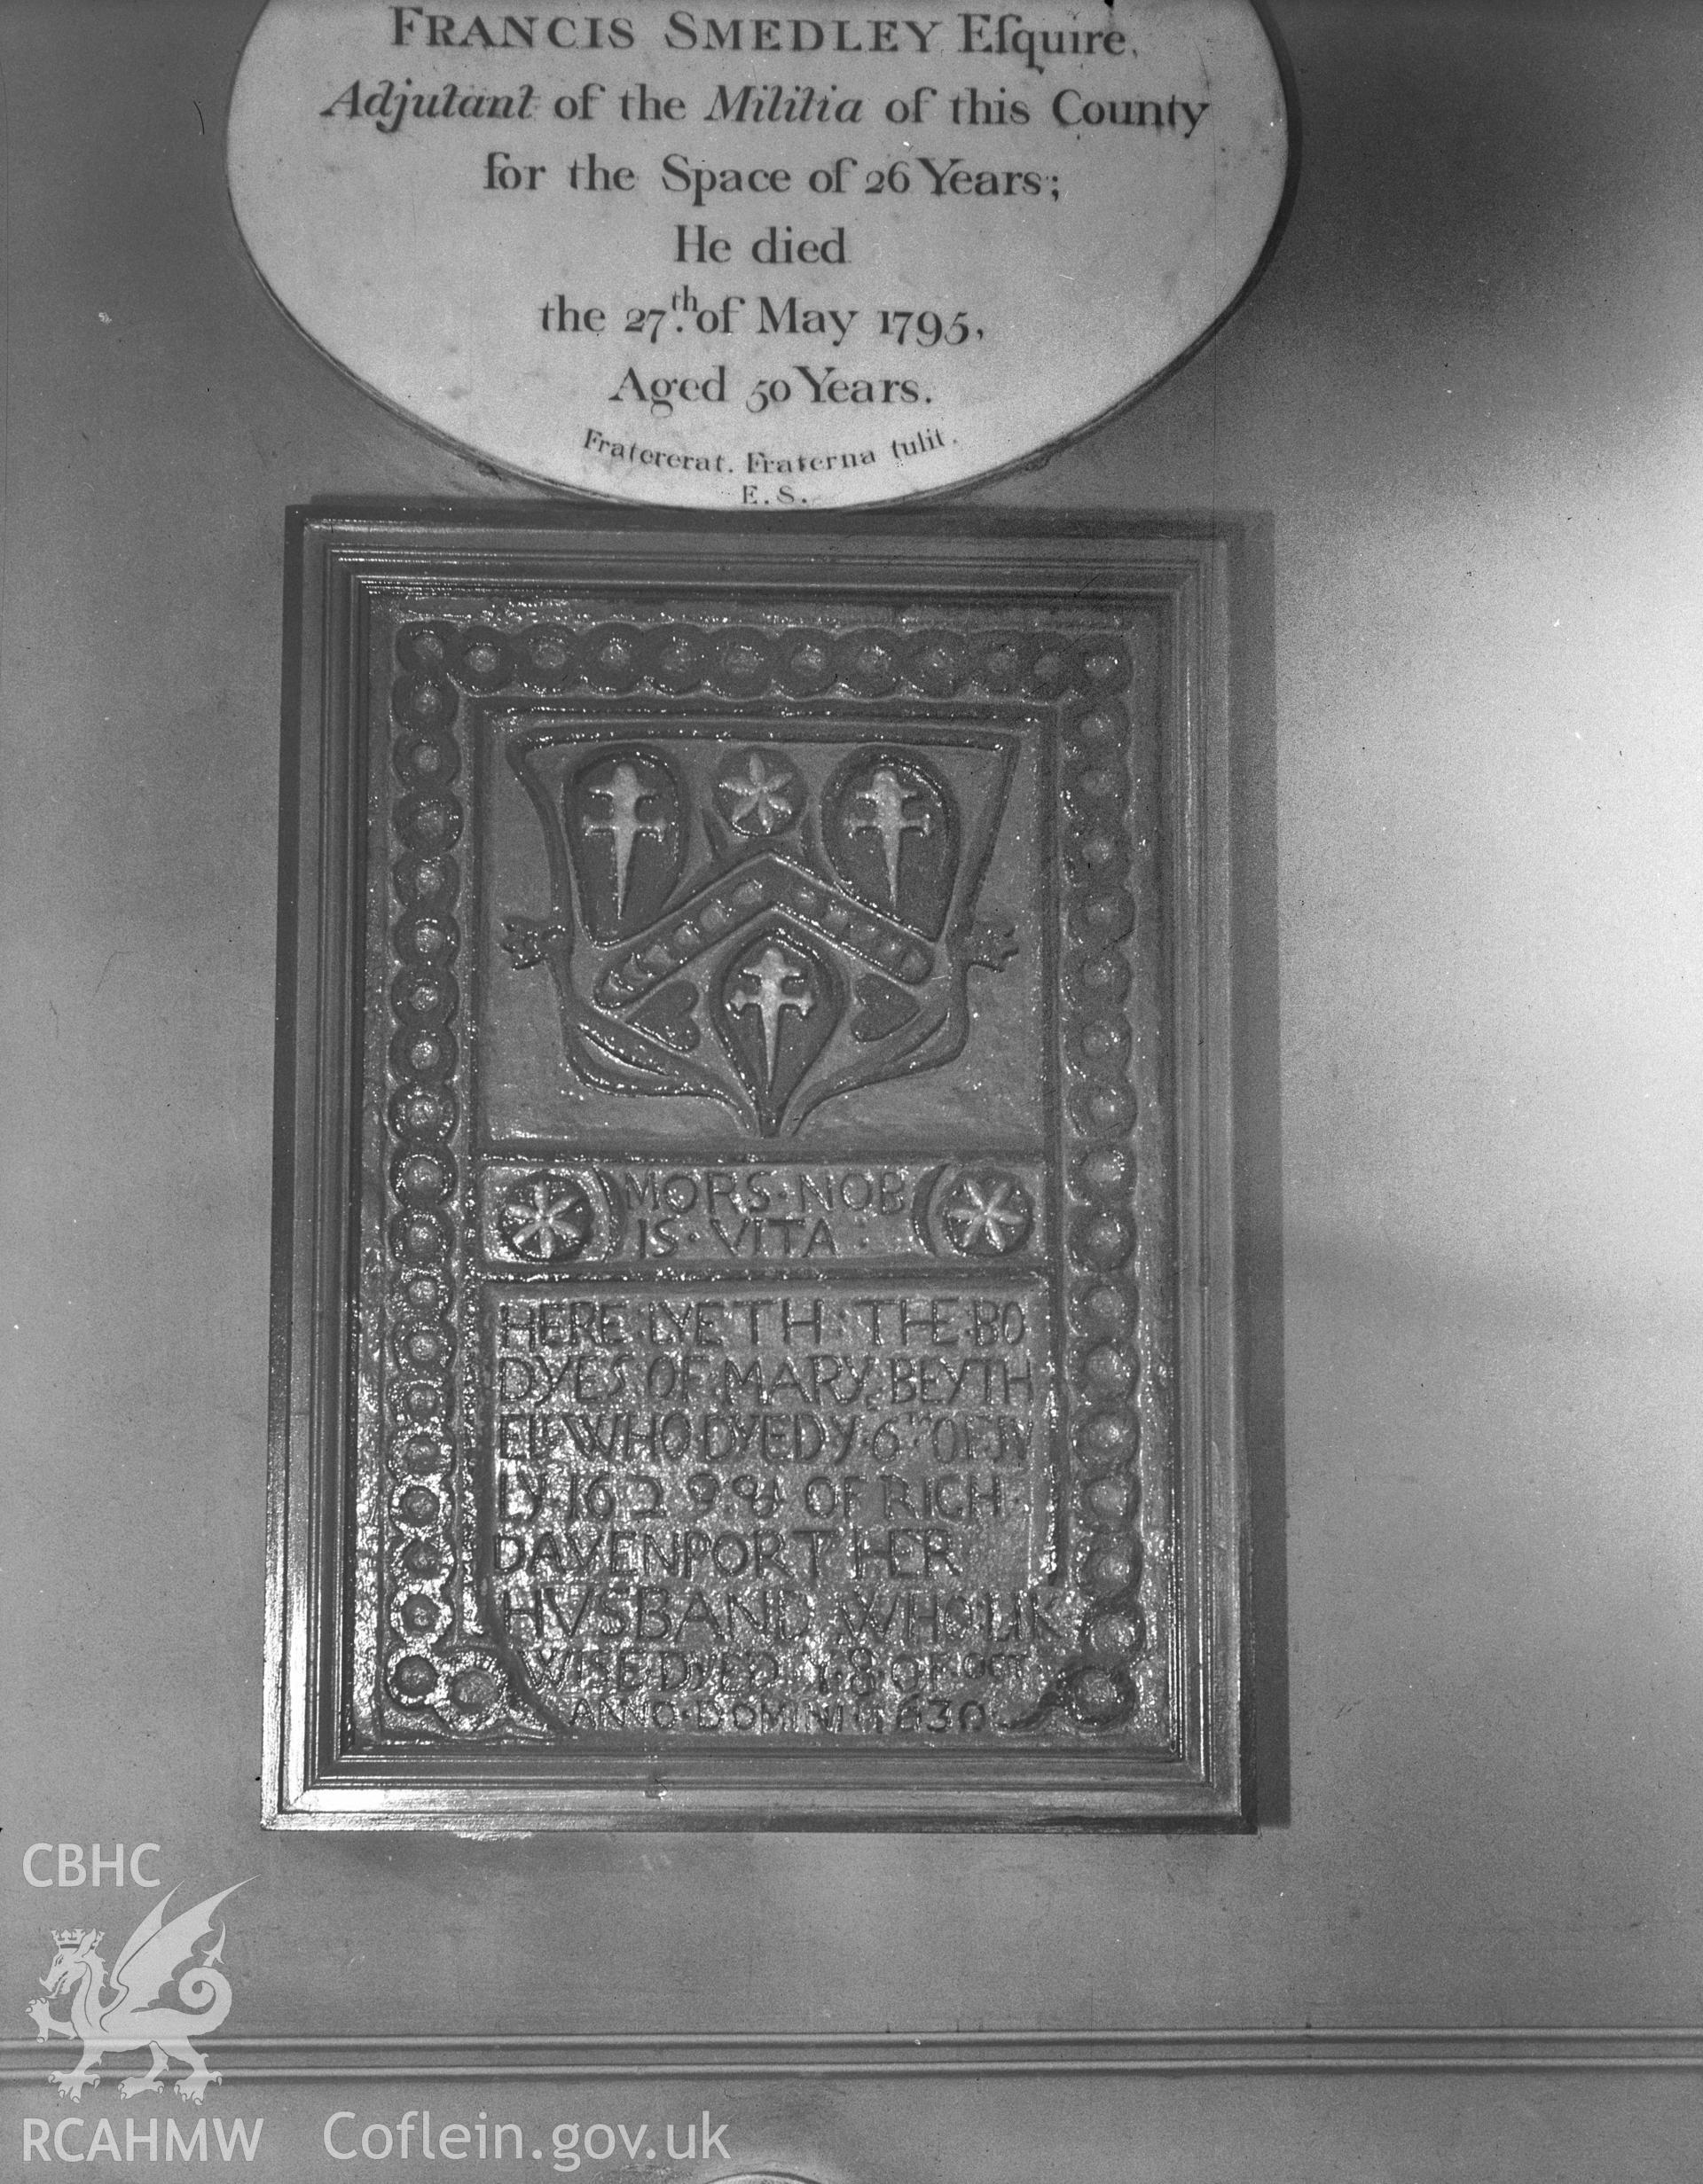 FRANCIS SMEDLEY Eſquire,
Adjutant of the Militia of this County
for the Space of 26 Years;
He died
the 27.th of May 1795,
Aged 50 Years.
Fratererat. Fraterna tulit.
E. S.
MORS·NOB
IS·VITA:
HERE·LYETH·THE·BO
DYES OF MARY BEYTH
ELL WHO DYED Y 6TH OF IV
LY 1629 & OF RICH
DAVENPORT HER
HVSBAND WHO LIK
WISE DYED Y 8 OF OCT
ANNO·DOMINI 1630
CBHC
RCAHMW
Coflein.gov.uk